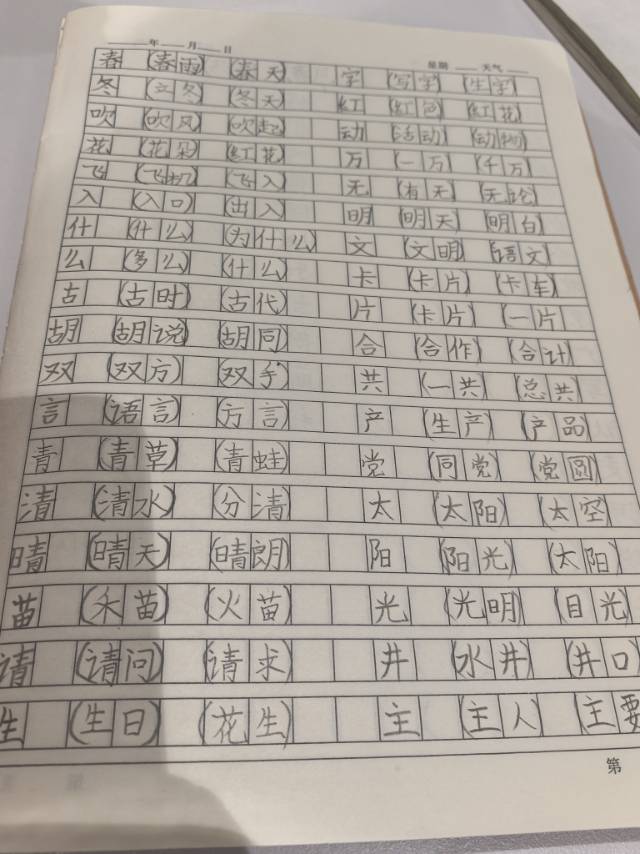 年 月 日 星期 天气
春 (春雨) (春天) 字 (写字) (生字)
冬 (立冬) (冬天) 红 (红色) (红花)
吹 (吹风) (吹起) 动 (活动) (动物)
花 (花朵) (红花) 万 (一万) (千万)
飞 (飞机) (飞入) 无 (有无) (无论)
入 (入口) (出入) 明 (明天) (明白)
什 (什么) (为什么) 文 (文明) (语文)
么 (多么) (什么) 卡 (卡片) (卡车)
古 (古时) (古代) 片 (卡片) (一片)
胡 (胡说) (胡同) 合 (合作) (合计)
双 (双方) (双手) 共 (一共) (总共)
言 (语言) (方言) 产 (生产) (产品)
青 (青草) (青蛙) 党 (同党) (党圆)
清 (清水) (分清) 太 (太阳) (太空)
晴 (晴天) (晴朗) 阳 (阳光) (太阳)
苗 (禾苗) (火苗) 光 (光明) (目光)
请 (请问) (请求) 井 (水井) (井口)
生 (生日) (花生) 主 (主人) (主要
第